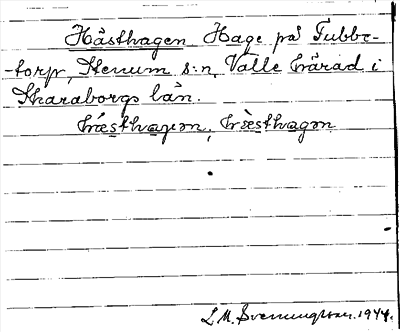 Hästhagen Hage på Tubbe-
-torp, Stenum s:n, Valle härad i
Skaraborgs län.
hæsthagən, hæsthagən
L.M. Svenungsson. 1944.